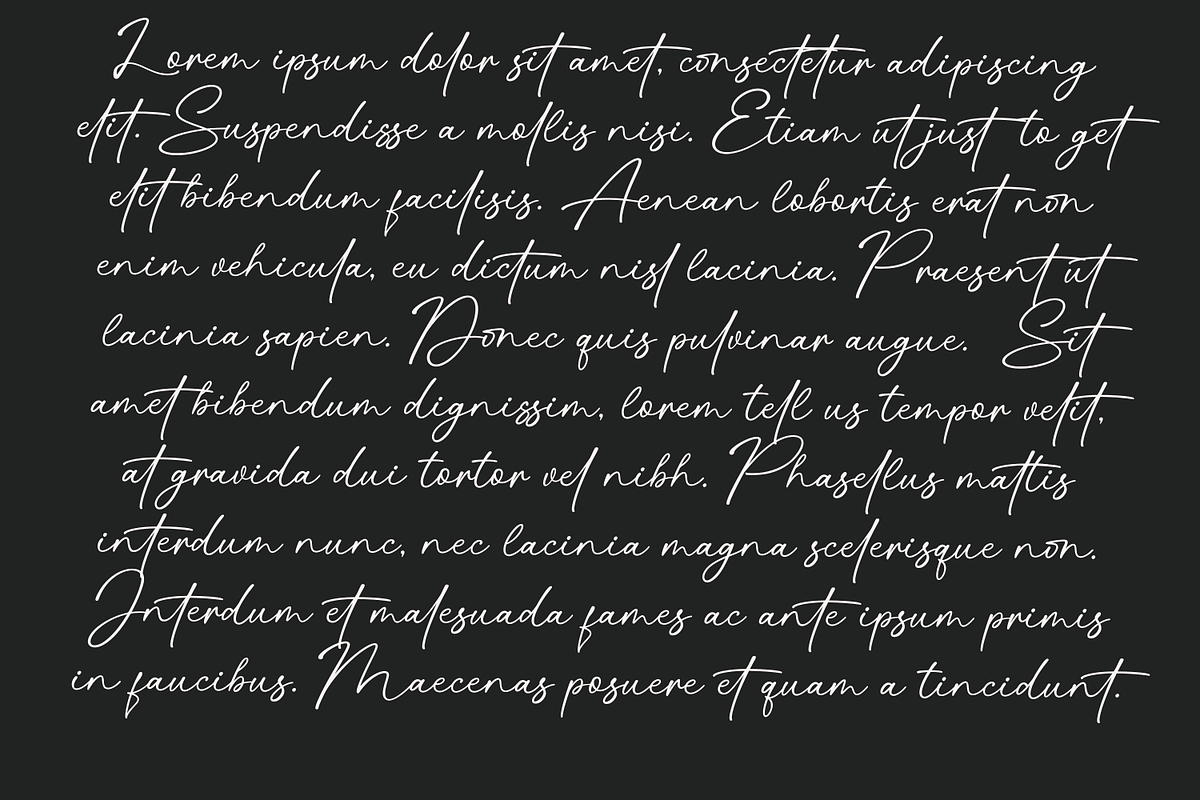 Lorem ipsum dolor sit amet, consectetur adipiscing
elit. Suspendisse a mollis nisi. Etiam ut just to get
elit bibendum facilisis. Aenean lobortis erat non
enim vehicula, eu dictum nisl lacinia. Praesent ut
lacinia sapien. Donec quis pulvinar augue. Sit
amet bibendum dignissim, lorem tell us tempor velit,
at gravida dui tortor vel nibh. Phasellus mattis
interdum nunc, nec lacinia magna scelerisque non.
Interdum et malesuada fames ac ante ipsum primis
in faucibus. Maecenas posuere et quam a tincidunt.